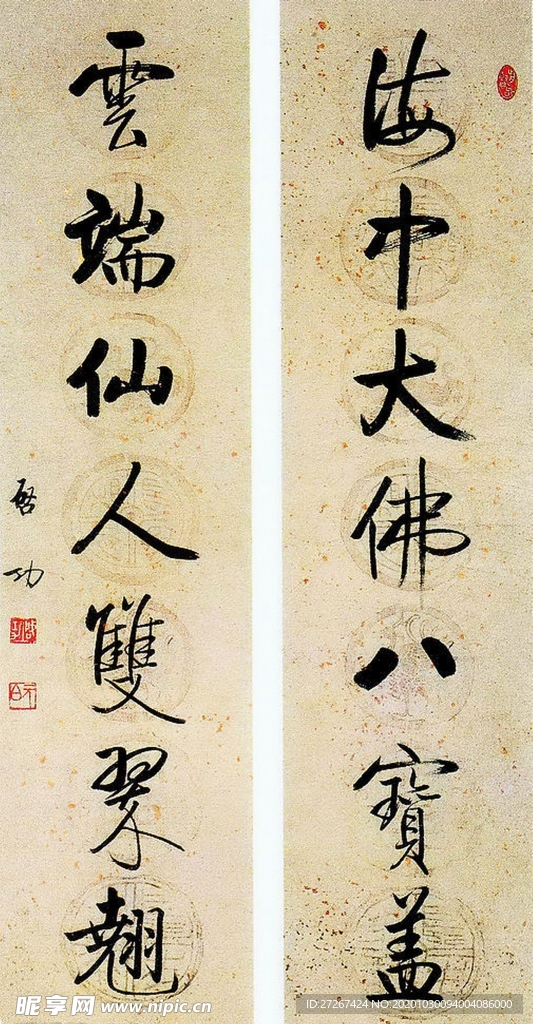 海中大佛八寶盖
雲端仙人雙翠翹
啓功
昵享网 www.nipic.cn
ID:27267424 NO:20201030094004086000